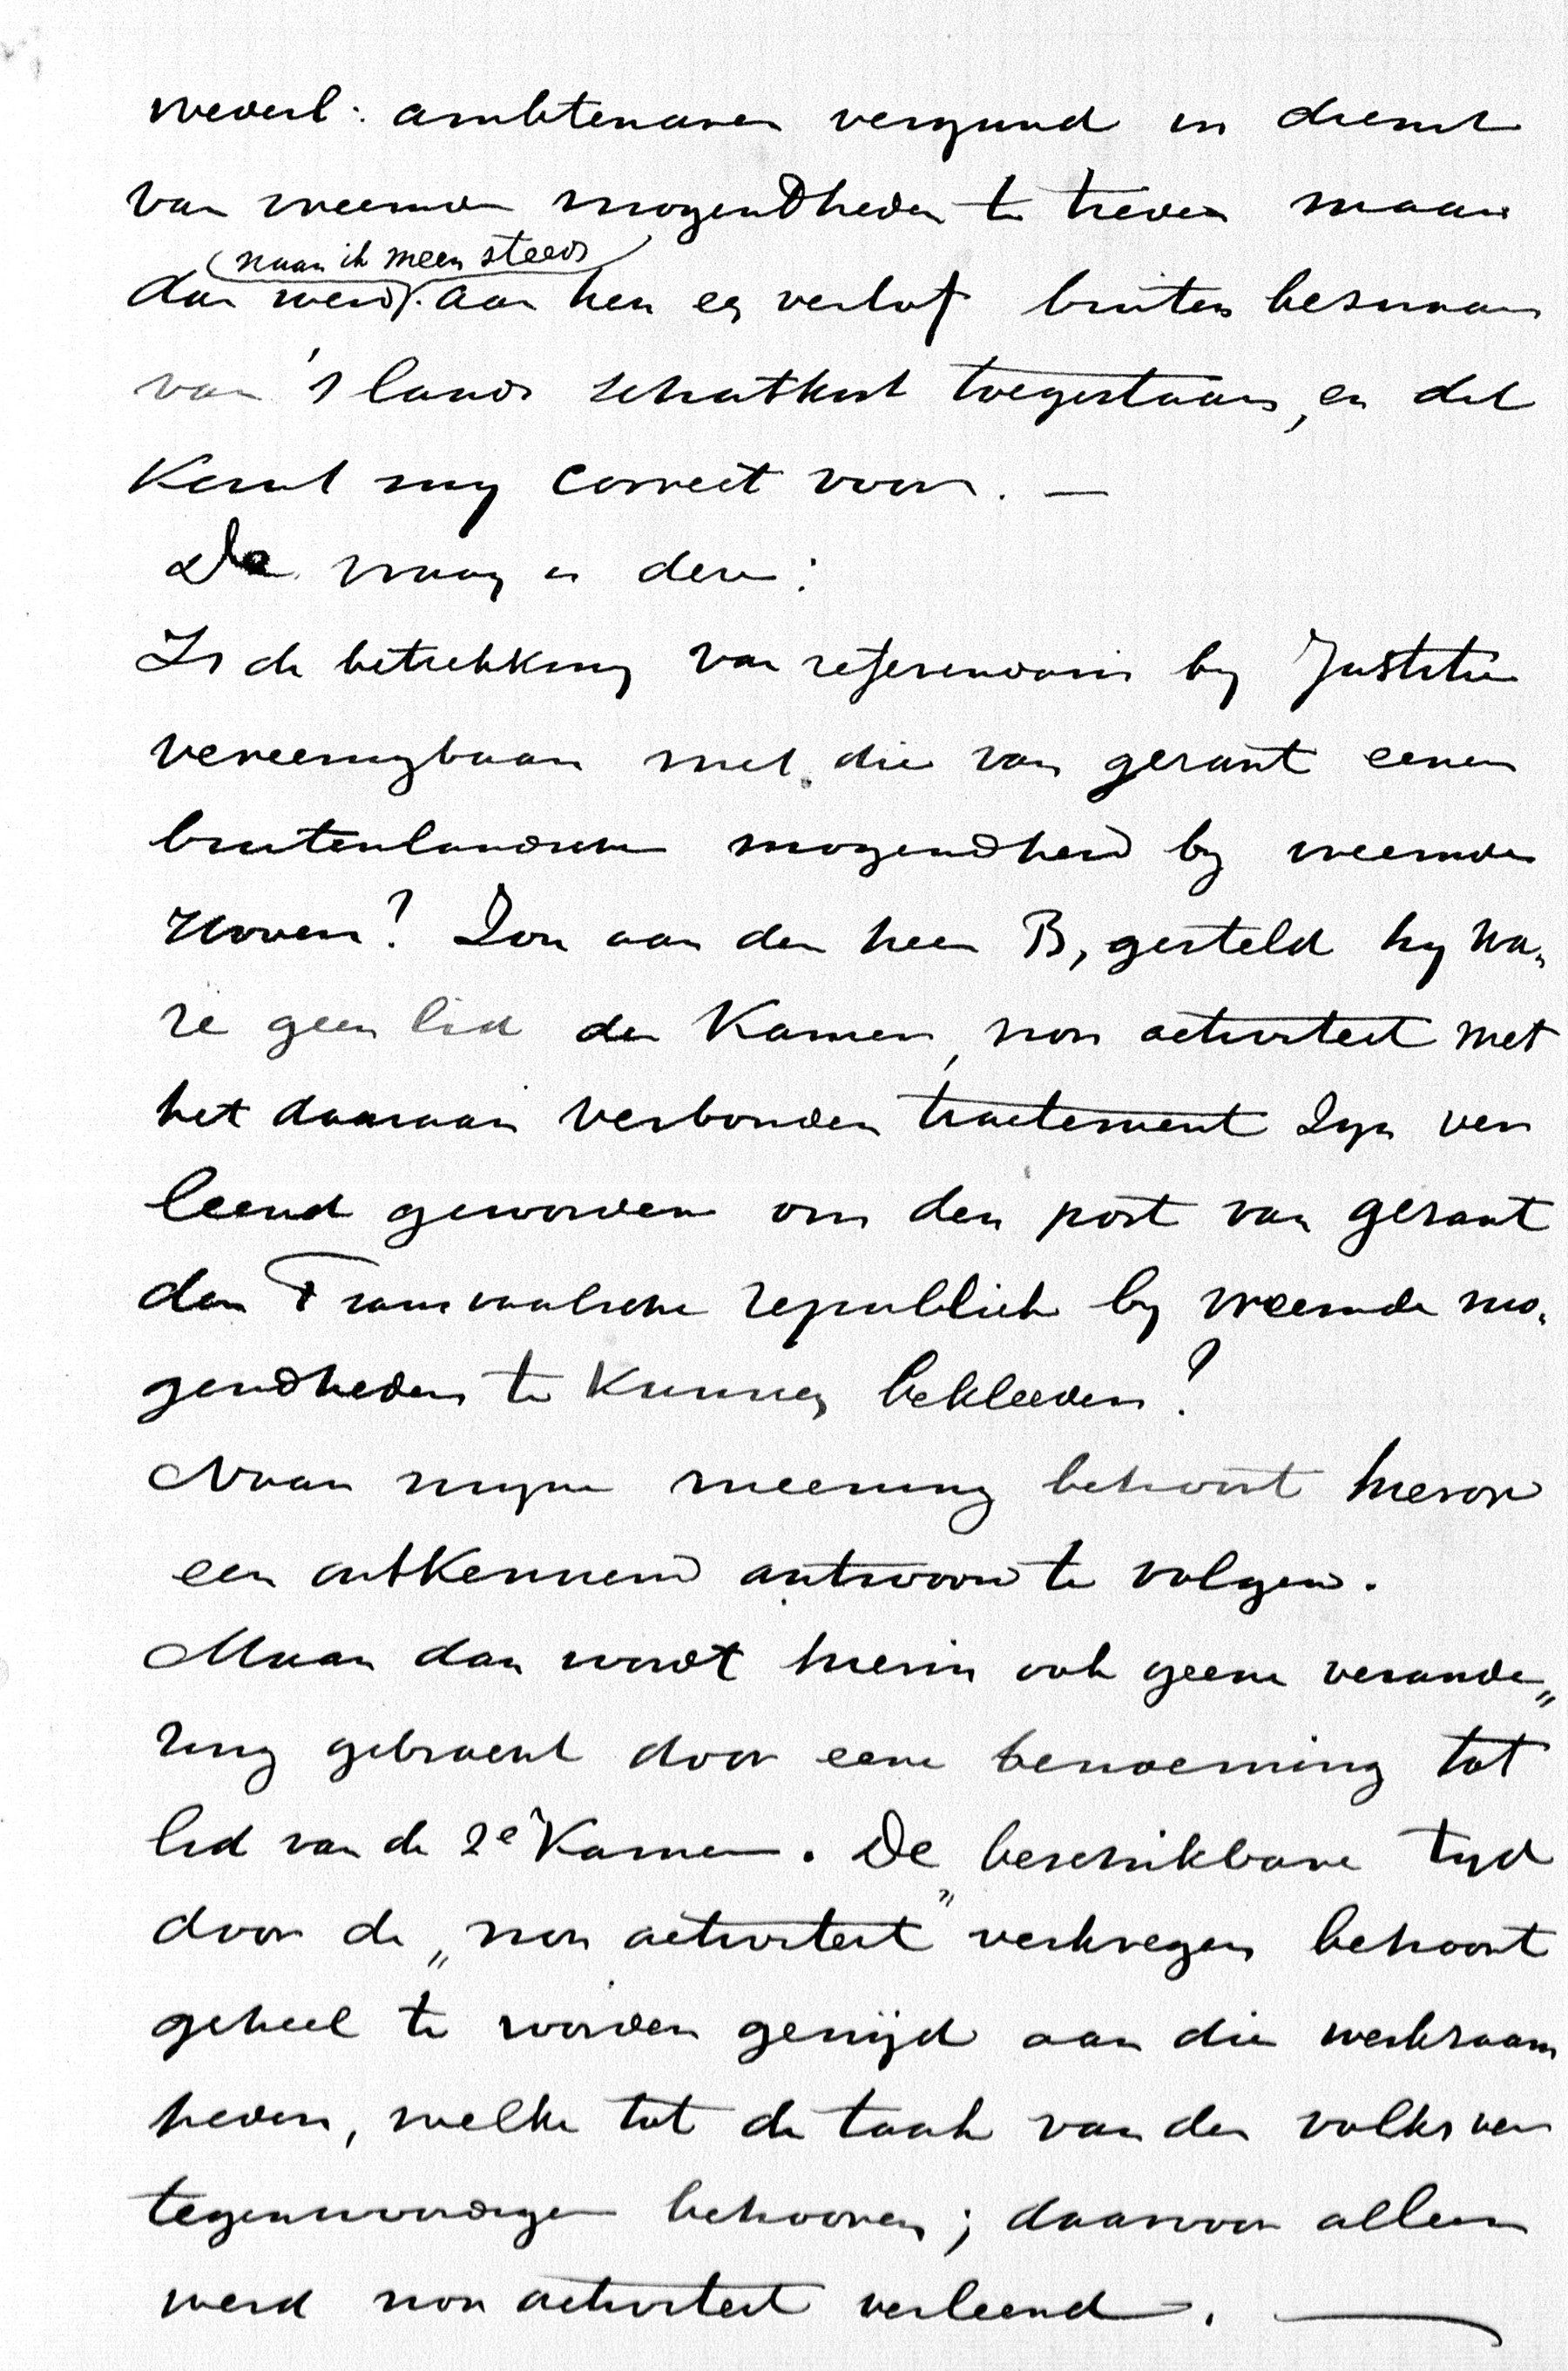 nederl: ambtenaren vergund in dienst
van vreemde mogendheden te treden maar
(naar ik meen steeds)
dan werd aan hen een verlof buiten bezwaar
van 's lands schatkist toegestaan, en dit
komt my correct voor. —
De vraag is deze:
Is de betrekking van referendaris by Justitie
vereenigbaar met die van gerant eener
buitenlandsche mogendheid by vreemde
Hoven? Zou aan den heer B, gesteld hy wa-
re geen lid der Kamer, non activiteit met
het daaraan verbonden tractement zyn ver
leend geworden om den post van gerant
der Transvaalsche republiek by vreemde mo-
gendheden te kunnen bekleeden?
Naar myne meening behoort hierop
een ontkennend antwoord te volgen.
Maar dan wordt hierin ook geene verande„
ring gebracht door eene benoeming tot
lid van de 2e Kamer. De beschikbare tyd
door de „non activiteit” verkregen behoort
geheel te worden gewijd aan die werkzaam
heden, welke tot de taak van den volksver
tegenwoordiger behooren; daarvoor alleen
werd non activiteit verleend. —